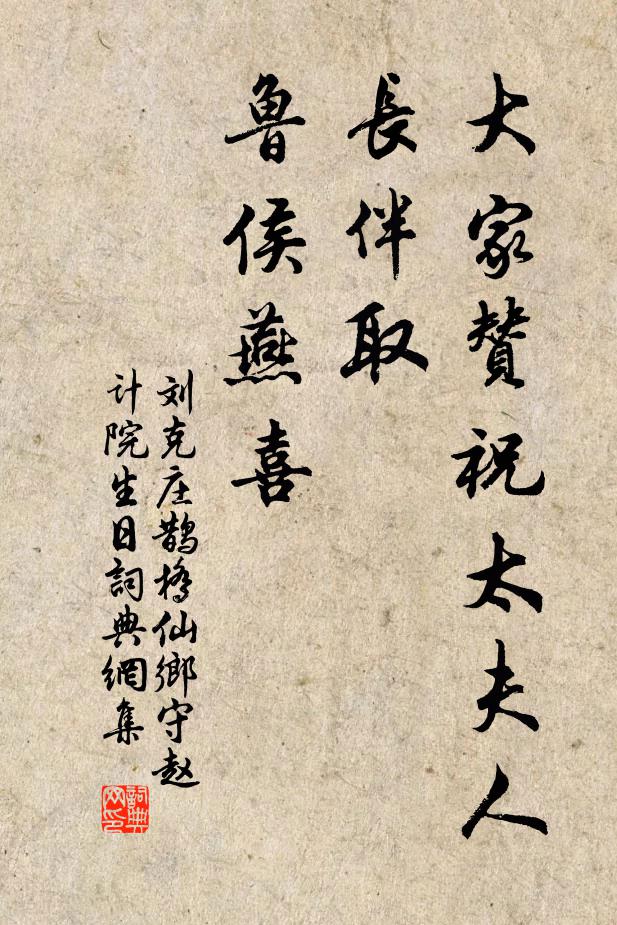 大家贊祝太夫人
長伴取
魯侯燕喜
刘克庄鵲橋仙鄉守赵
计院生日詞典網集
詞典
网印